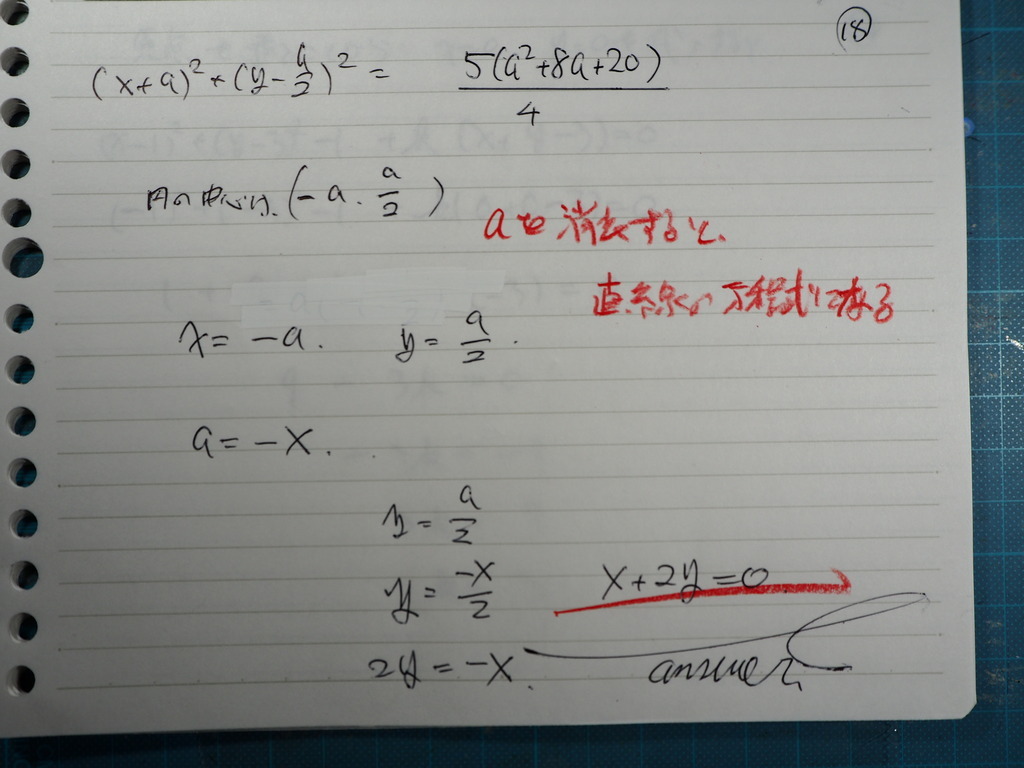 ⑱
(x+a)²+(y-a/2)² = 5(a²+8a+20)/4
円の中心は、(-a, a/2)
aを消去すると、
直線の方程式になる
x = -a. y = a/2.
a = -x.
y = a/2
y = -x/2
x+2y=0
2y = -x.
answer